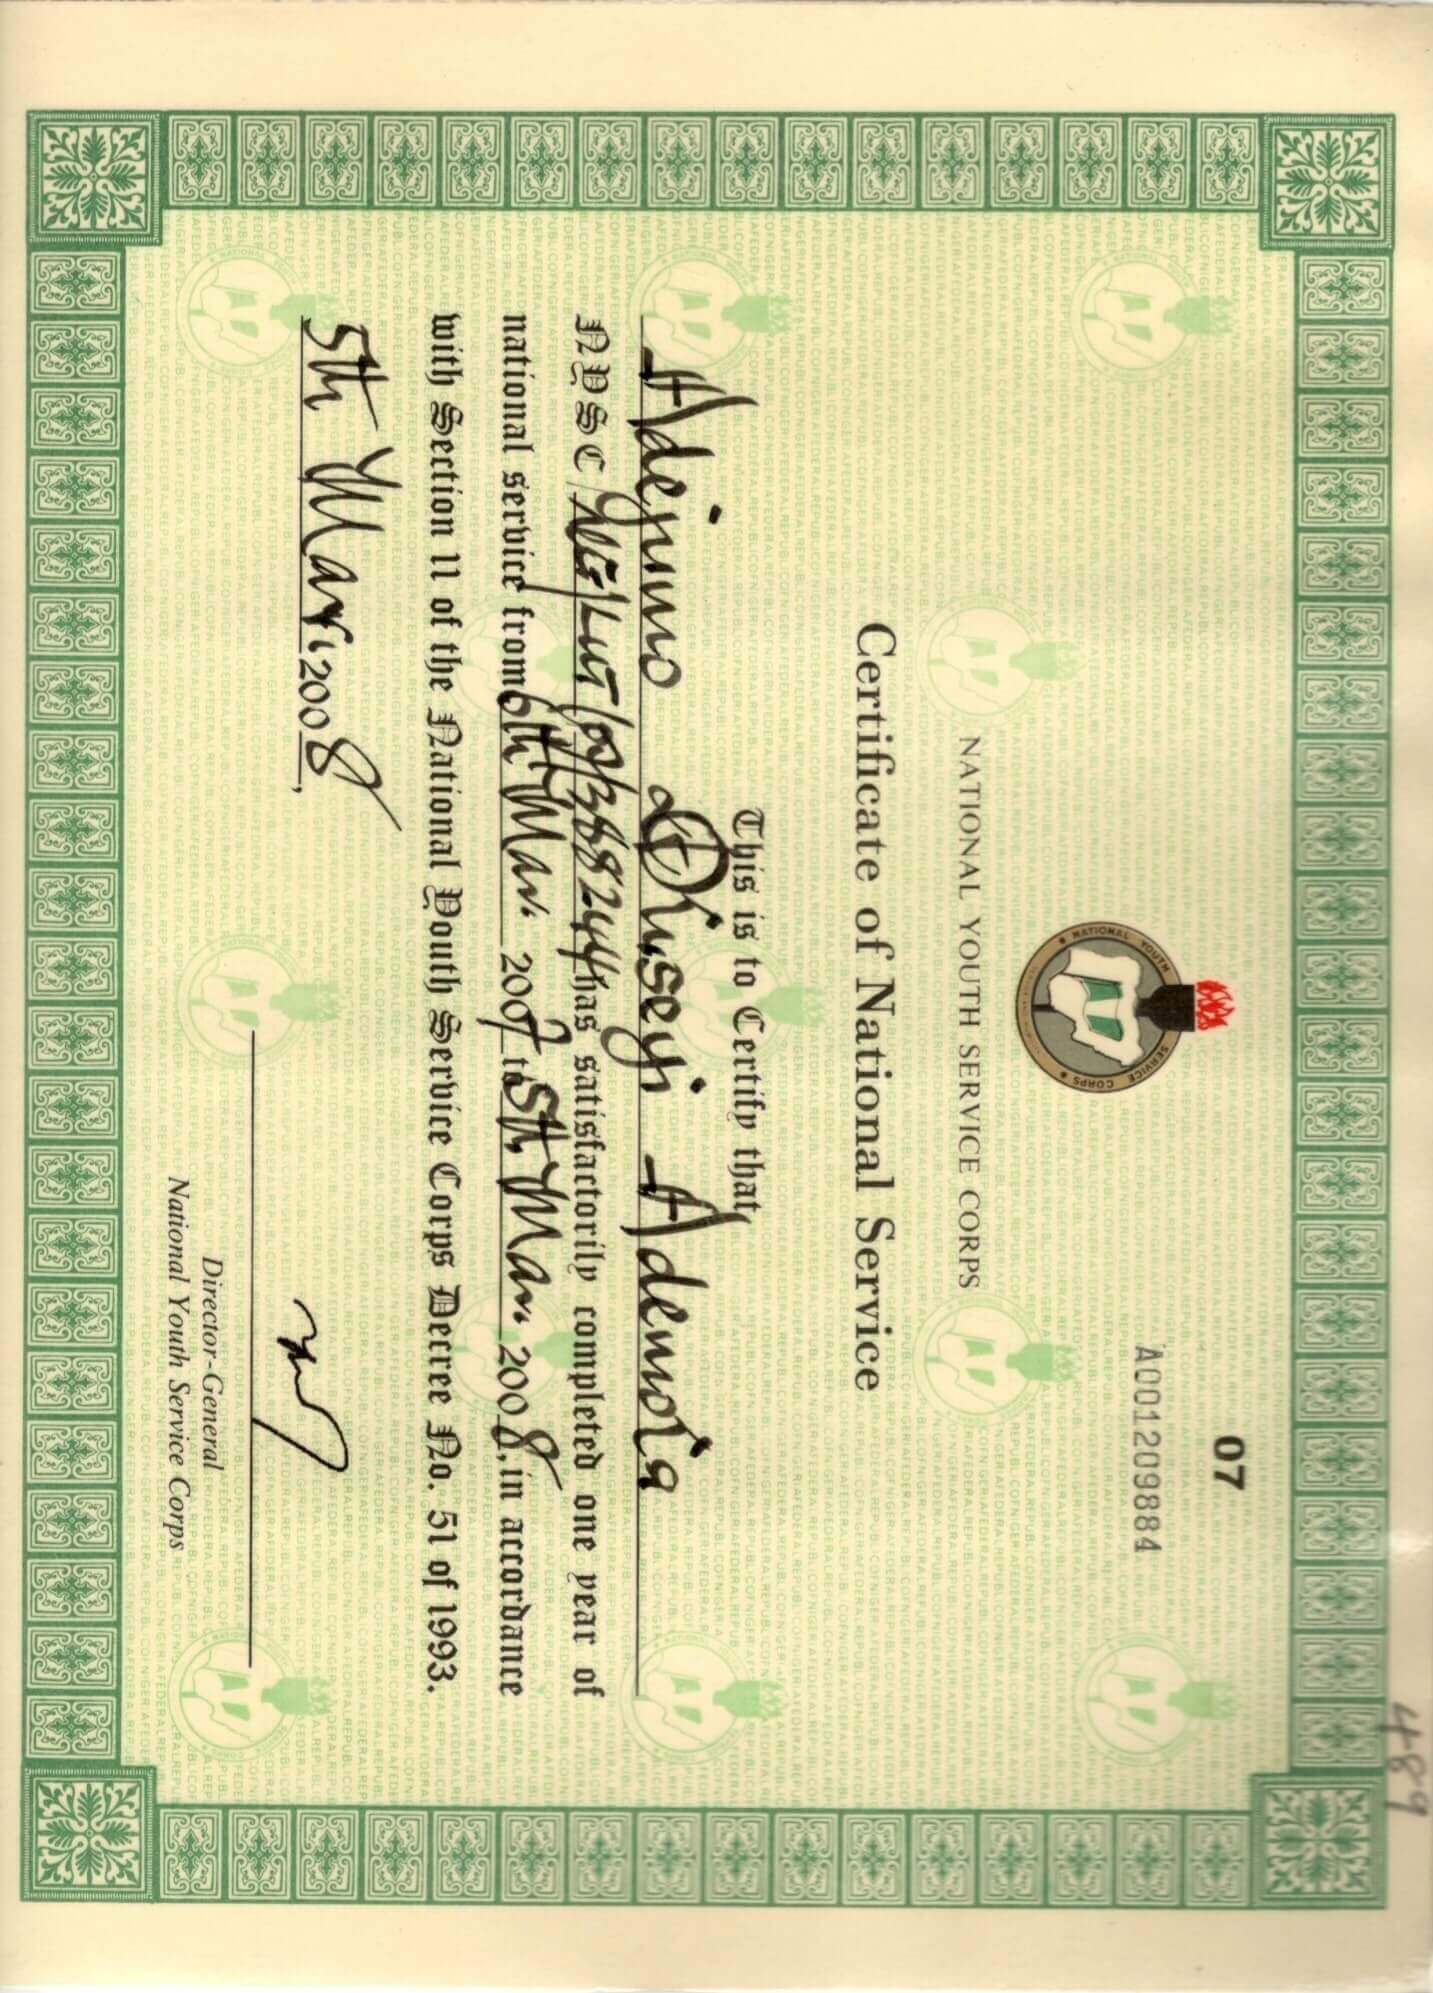 489
07
A001209884
NATIONAL YOUTH SERVICE CORPS
NATIONAL YOUTH SERVICE CORPS
Certificate of National Service
This is to Certify that,
Adejumo Oluseyi Ademola
NYSC/ has satisfactorily completed one year of
national service from 6th Mar. 2007 to 5th Mar. 2008, in accordance
with Section 11 of the National Youth Service Corps Decree No. 51 of 1993.
5th Mar. 2008,
Director-General
National Youth Service Corps